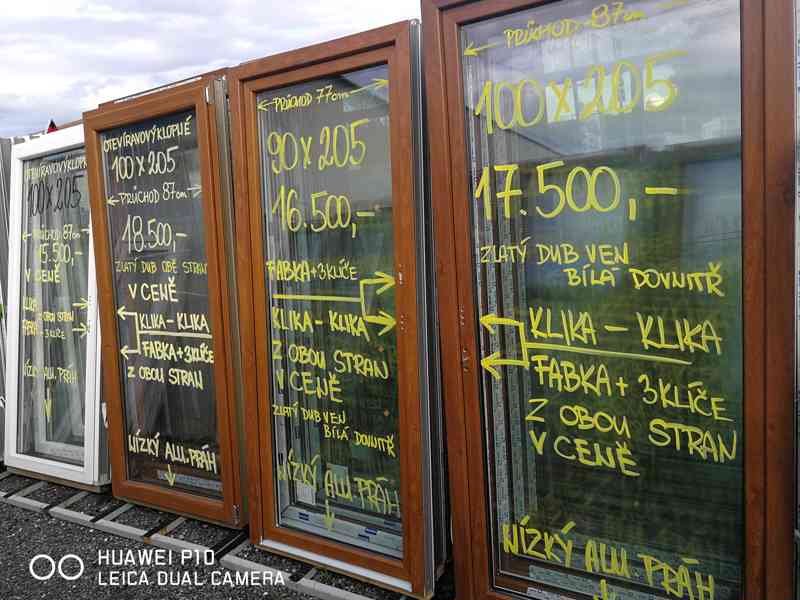 OTEVÍRAVOVÝKLOPNÉ
100 x 205
PRŮCHOD 87cm
15.500,-
V CENĚ
KLIKA
Z OBOU STRAN
FABKA
+ 3 KLÍČE
NÍZKÝ AL. PRÁH
OTEVÍRAVOVÝKLOPNÉ
100 x 205
PRŮCHOD 87cm
18.500,-
ZLATÝ DUB OBĚ STRAN
V CENĚ
KLIKA - KLIKA
FABKA + 3 KLÍČE
Z OBOU STRAN
NÍZKÝ ALU. PRÁH
PRŮCHOD 77cm
90 x 205
16.500,-
FABKA + 3 KLÍČE
KLIKA - KLIKA
Z OBOU STRAN
V CENĚ
ZLATÝ DUB VEN
BÍLÁ DOVNITŘ
NÍZKÝ ALU. PRÁH
PRŮCHOD - 87cm
100 x 205
17.500,-
ZLATÝ DUB VEN
BÍLÁ DOVNITŘ
KLIKA - KLIKA
FABKA + 3 KLÍČE
Z OBOU STRAN
V CENĚ
NÍZKÝ ALU. PRÁH
HUAWEI P10
LEICA DUAL CAMERA